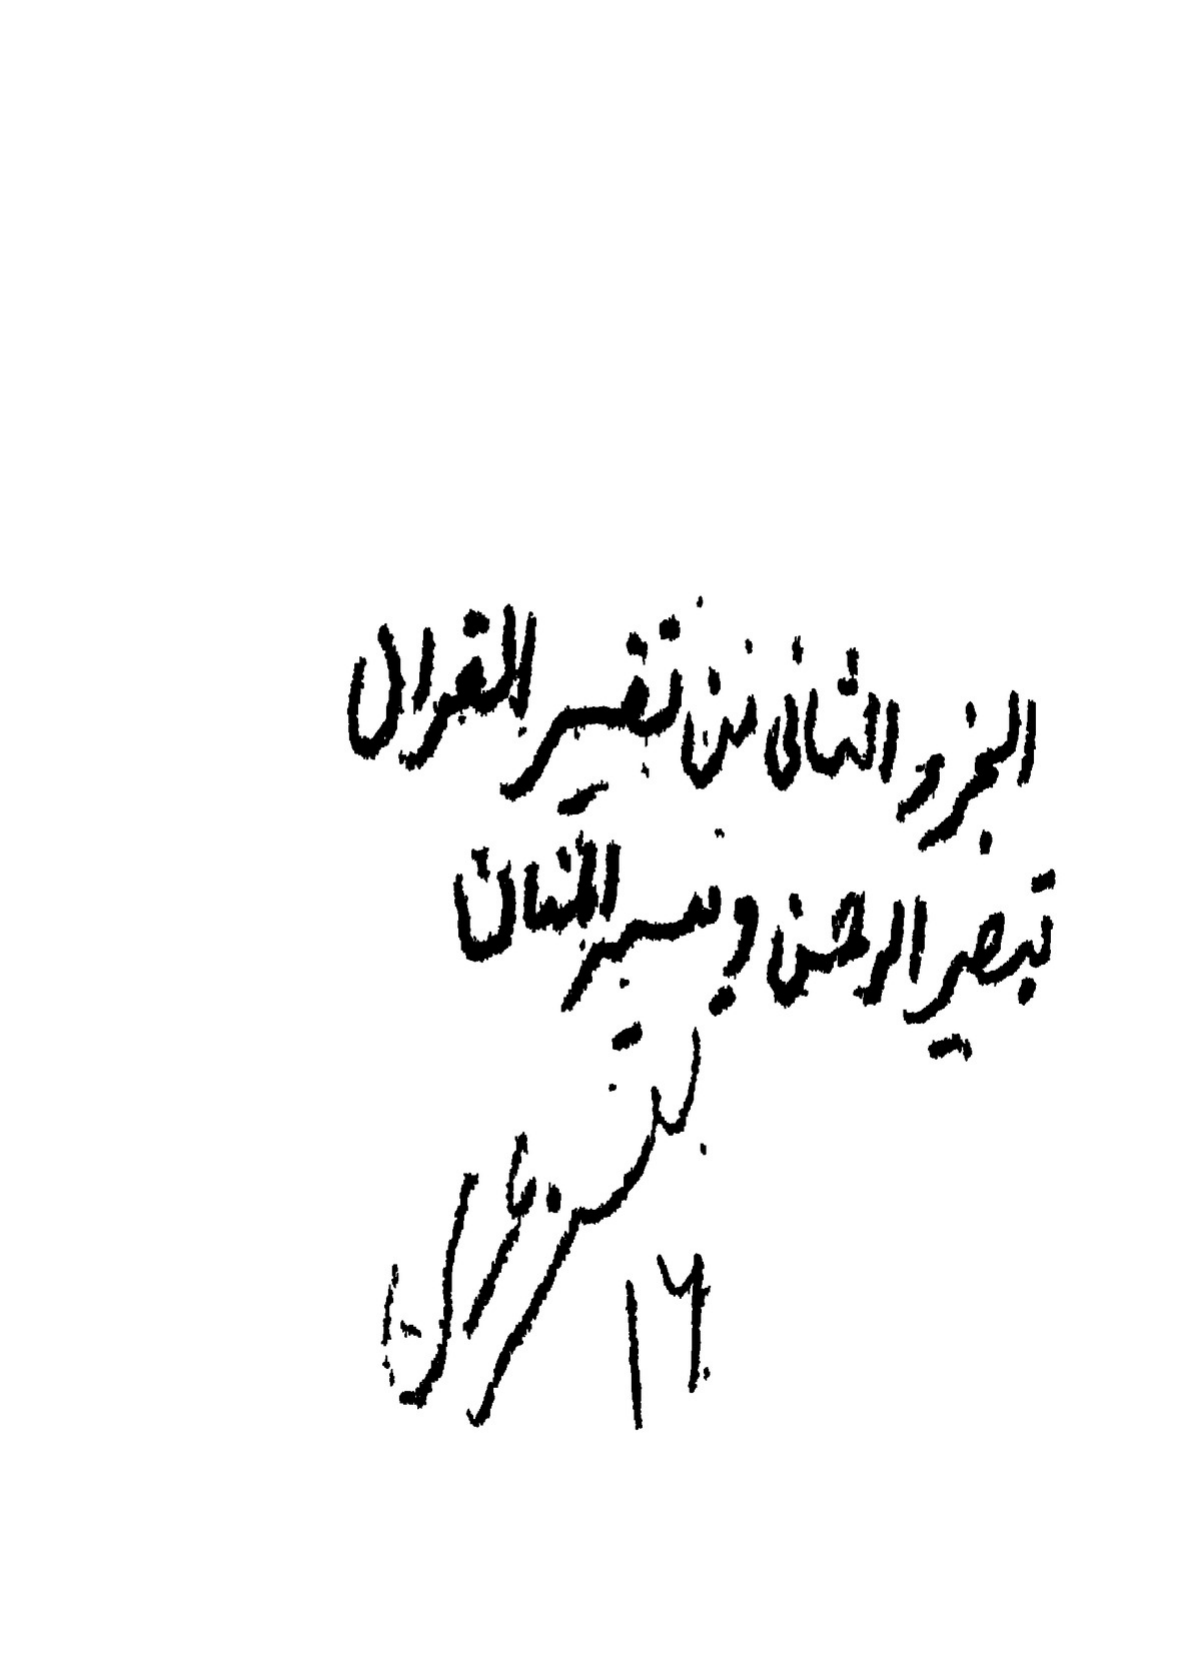 الجزو الثانى من تفسير القران
تبصير الرحمن وتيسير المنان
تفسير
١٦